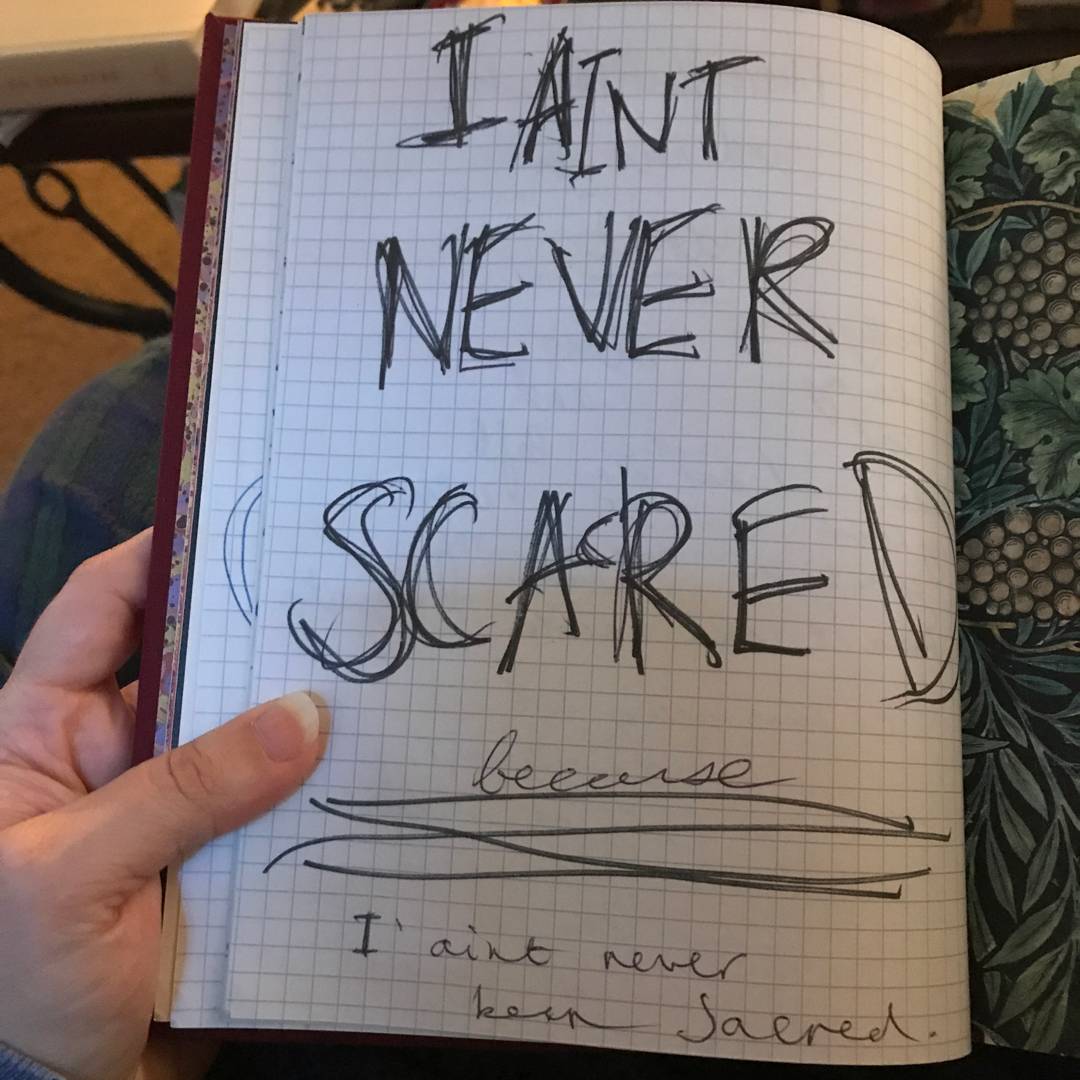 I AINT
NEVER
SCARED
because
I aint never
been Sacred.